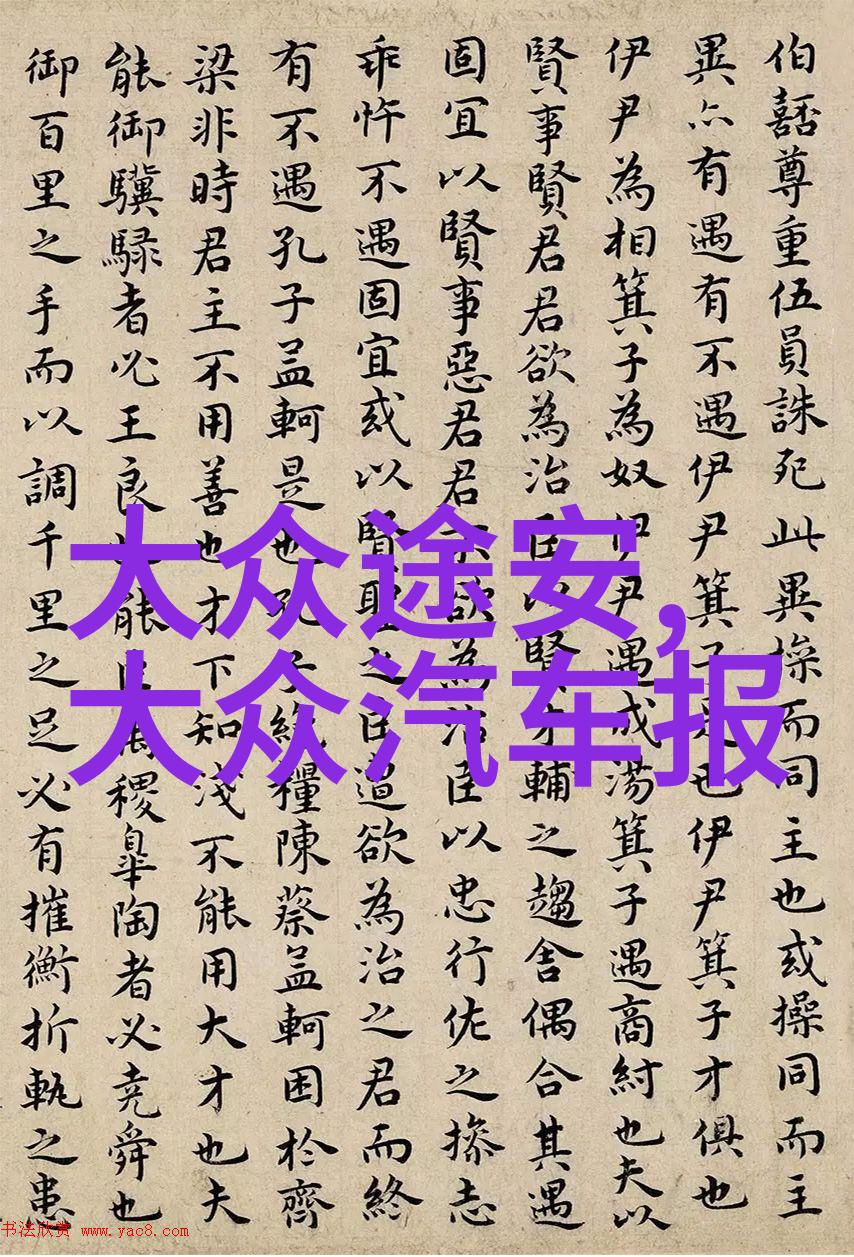 伯嚭尊重伍員誅死此異操而同主也或操同而主
異亦有遇有不遇伊尹箕子是也伊尹箕子才俱也
伊尹為相箕子為奴伊尹遇成湯箕子遇商紂也夫以
賢事賢君君欲為治臣以賢才輔之趨舍偶合其遇
固宜以賢事惡君君不欲為治臣以忠行佐之操志
乖忤不遇固宜或以賢聖之臣遭欲為治之君而終
有不遇孔子孟軻是也孔子絕糧陳蔡孟軻困於齊
梁非時君主不用善也才下知淺不能用大才也夫
能御驥騄者必王良也能臣禹稷皐陶者必堯舜也
御百里之手而以調千里之足必有摧衡折軛之患
大众途安,
大众汽车报
书法欣赏 www.yac8.com